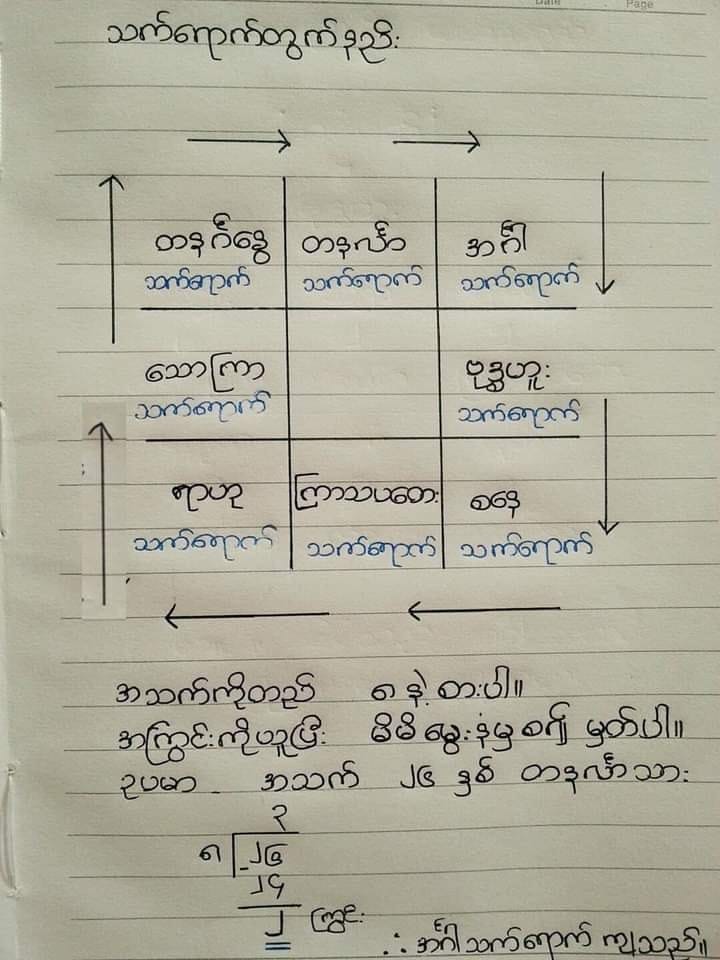 Date Page
သက်ရောက်တွက်နည်း
→ →
တနင်္ဂနွေ တနင်္လာ အင်္ဂါ
သက်ရောက် သက်ရောက် သက်ရောက်
သောကြာ ဗုဒ္ဓဟူး
သက်ရောက် သက်ရောက်
ရာဟု ကြာသပတေး စနေ
သက်ရောက် သက်ရောက် သက်ရောက်
← ←
အသက်ကိုတည် ၈ နဲ့ စားပါ။
အကြွင်းကိုယူပြီး မိမိမွေးနံမှစ၍ မှတ်ပါ။
ဥပမာ - အသက် ၂၆ နှစ် တနင်္လာသား
၃
၈ ၂၆
- ၂၄
၂ ကြွင်း
∴ အင်္ဂါသက်ရောက် ကျသည်။